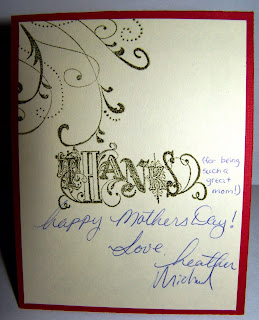 THANKS
(for being
such a
great
mom!)
happy Mothers Day!
Love,
heather
Michael